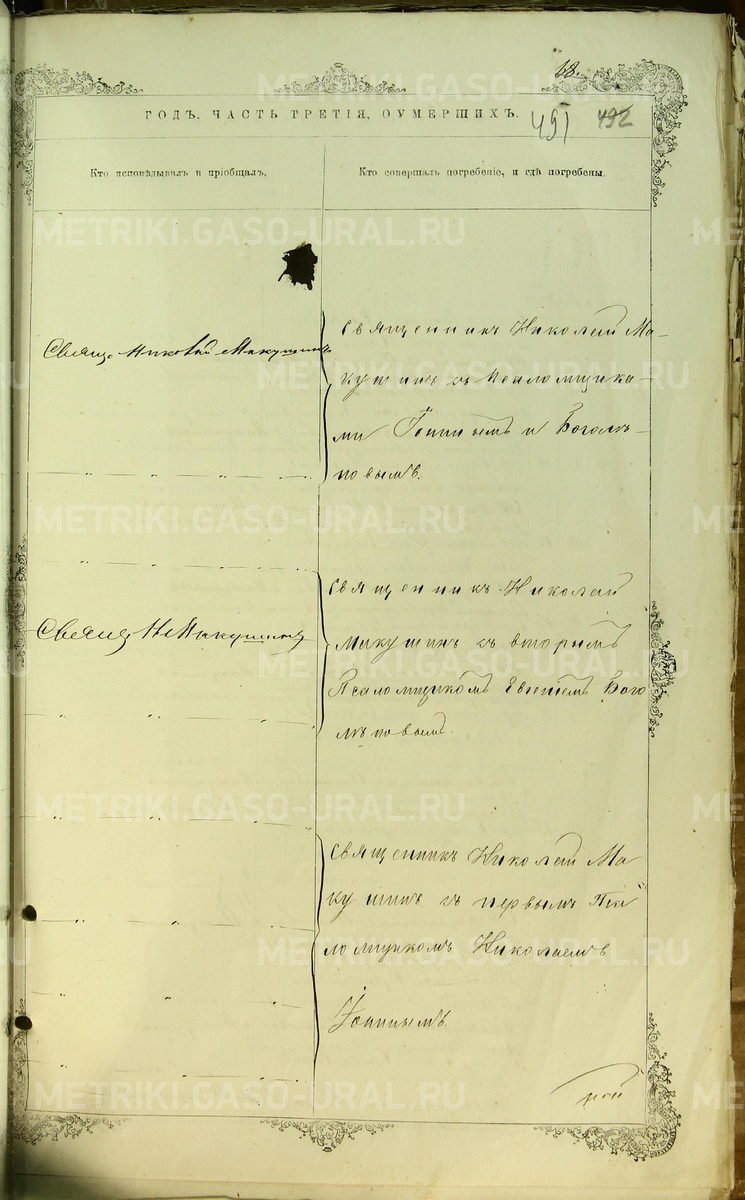 68.
ГОДЪ, ЧАСТЬ ТРЕТІЯ, ОУМЕРШИХЪ.
491 492
Кто исповѣдывалъ и пріобщалъ.
Кто совершалъ погребеніе, и гдѣ погребены.
Священникъ Николай Ма-
кушинъ съ псаломщика-
ми и Боголѣ-
повымъ.
Свящ. Николай Макушинъ
Священникъ Николай
Макушинъ съ вторымъ
Псаломщикомъ Евгеніемъ Бого
лѣповымъ.
Свящ. Н. Макушинъ
Священникъ Николай Ма
кушинъ съ первымъ Пса
ломщикомъ Николаемъ
METRIKI.GASO-URAL.RU